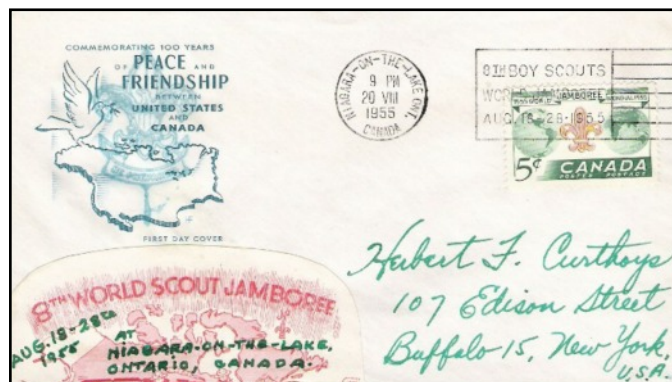 COMMEMORATING 100 YEARS
OF PEACE AND
FRIENDSHIP
BETWEEN
UNITED STATES
AND
CANADA
FIRST DAY COVER
NIAGARA-ON-THE-LAKE ONT.
9 PM
20 VIII
1955
CANADA
8TH BOY SCOUTS
WORLD JAMBOREE
AUG. 18-28-1955
JAMBOREE
5¢
CANADA
POSTES POSTAGE
Herbert F. Curthoys
107 Edison Street
Buffalo 15, New York
U.S.A.
8TH WORLD SCOUT JAMBOREE
AUG. 18-28TH
1955
AT
NIAGARA-ON-THE-LAKE,
ONTARIO, CANADA.